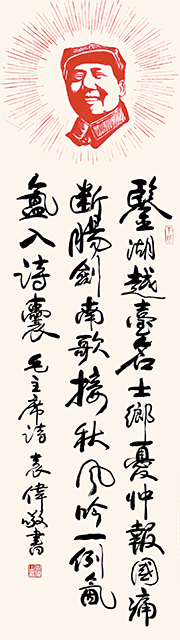 鑒湖越臺名士鄉憂忡報國痛
断腸劍南歌接秋风吟一例氤
氲入詩囊 毛主席詩 袁偉敬書